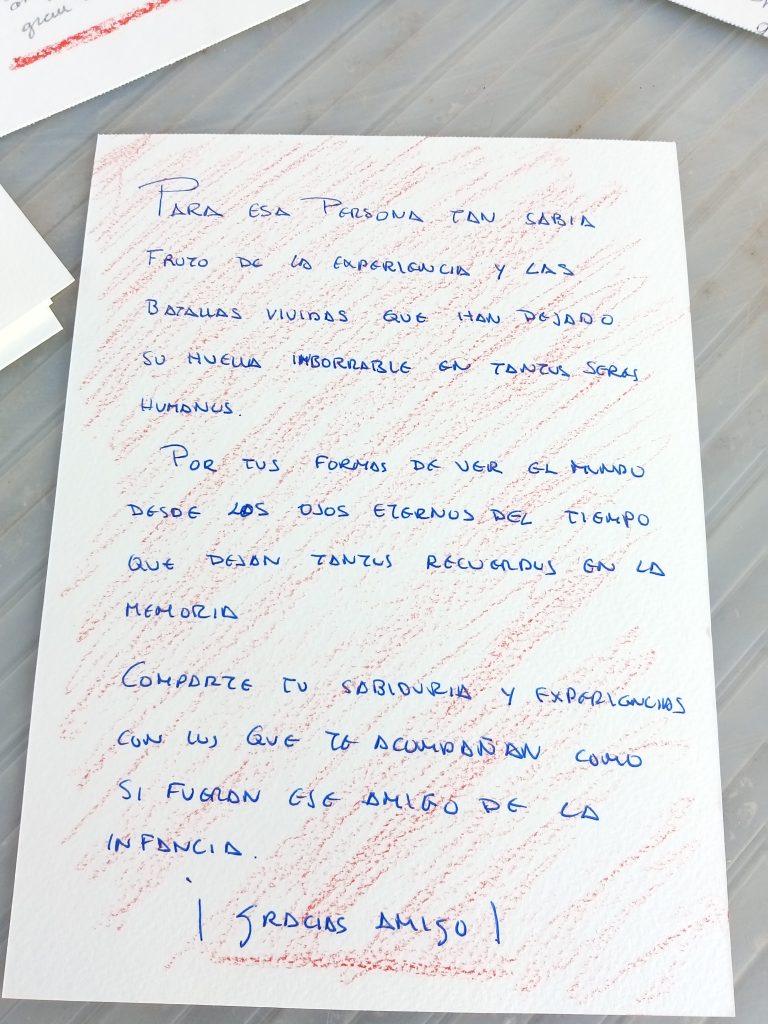 gran
PARA ESA PERSONA TAN SABIA
FRUTO DE LA EXPERIENCIA Y LAS
BATALLAS VIVIDAS QUE HAN DEJADO
SU HUELLA INBORRABLE EN TANTOS SERES
HUMANOS.
POR TUS FORMAS DE VER EL MUNDO
DESDE LOS OJOS ETERNOS DEL TIEMPO
QUE DEJAN TANTOS RECUERDOS EN LA
MEMORIA
COMPARTE TU SABIDURIA Y EXPERIENCIAS
CON LOS QUE TE ACOMPAÑAN COMO
SI FUERAN ESE AMIGO DE LA
INFANCIA.
¡GRACIAS AMIGO!